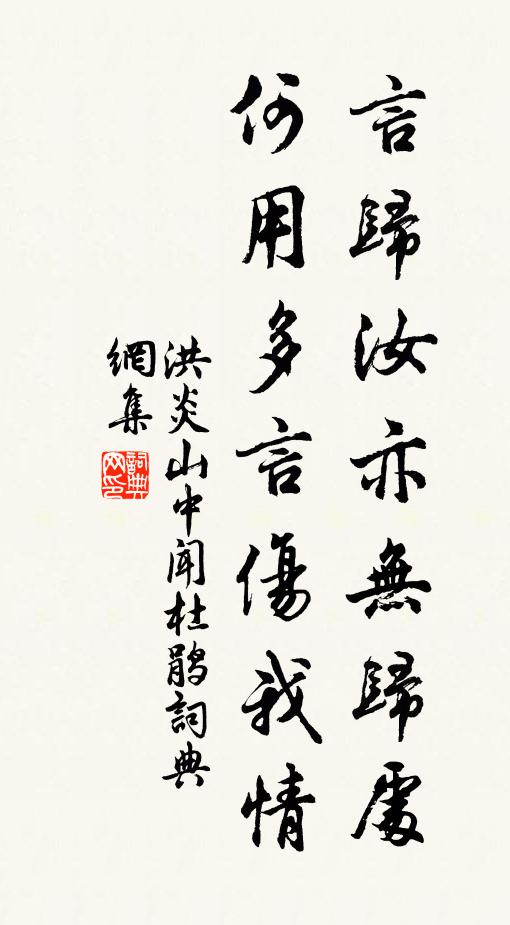 言歸汝亦無歸處
何用多言傷我情
洪炎山中聞杜鵑詞典
網集
詞典
网印